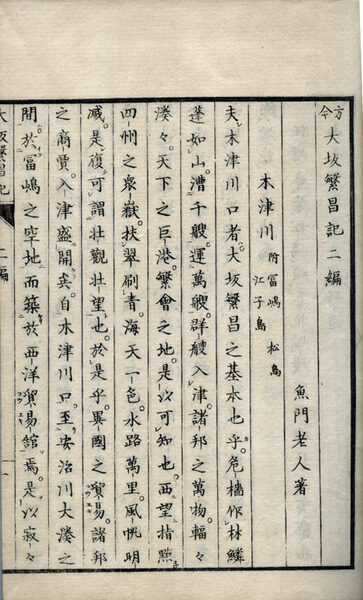 方今大坂繁昌記二編
魚門老人著
木津川 附冨嶋 松島 江子島
夫木津川口者大坂繁昌之基本也乎危檣作林鱗
蓬如山漕千艘運萬艘群艘入津諸邦之萬物輻々
湊々天下之巨港繁會之地是以可知也西望指點
四州之衆嶽扶翠刷青海天一色水路萬里風帆明
滅是復可謂壯觀壯望也於是乎異國之貿易諸邦
之商賈入津盛開矣自木津川口至安治川大湊之
間於冨嶋之空地而築於西洋貿易館焉是以寂々
大坂繁昌記 二編 一